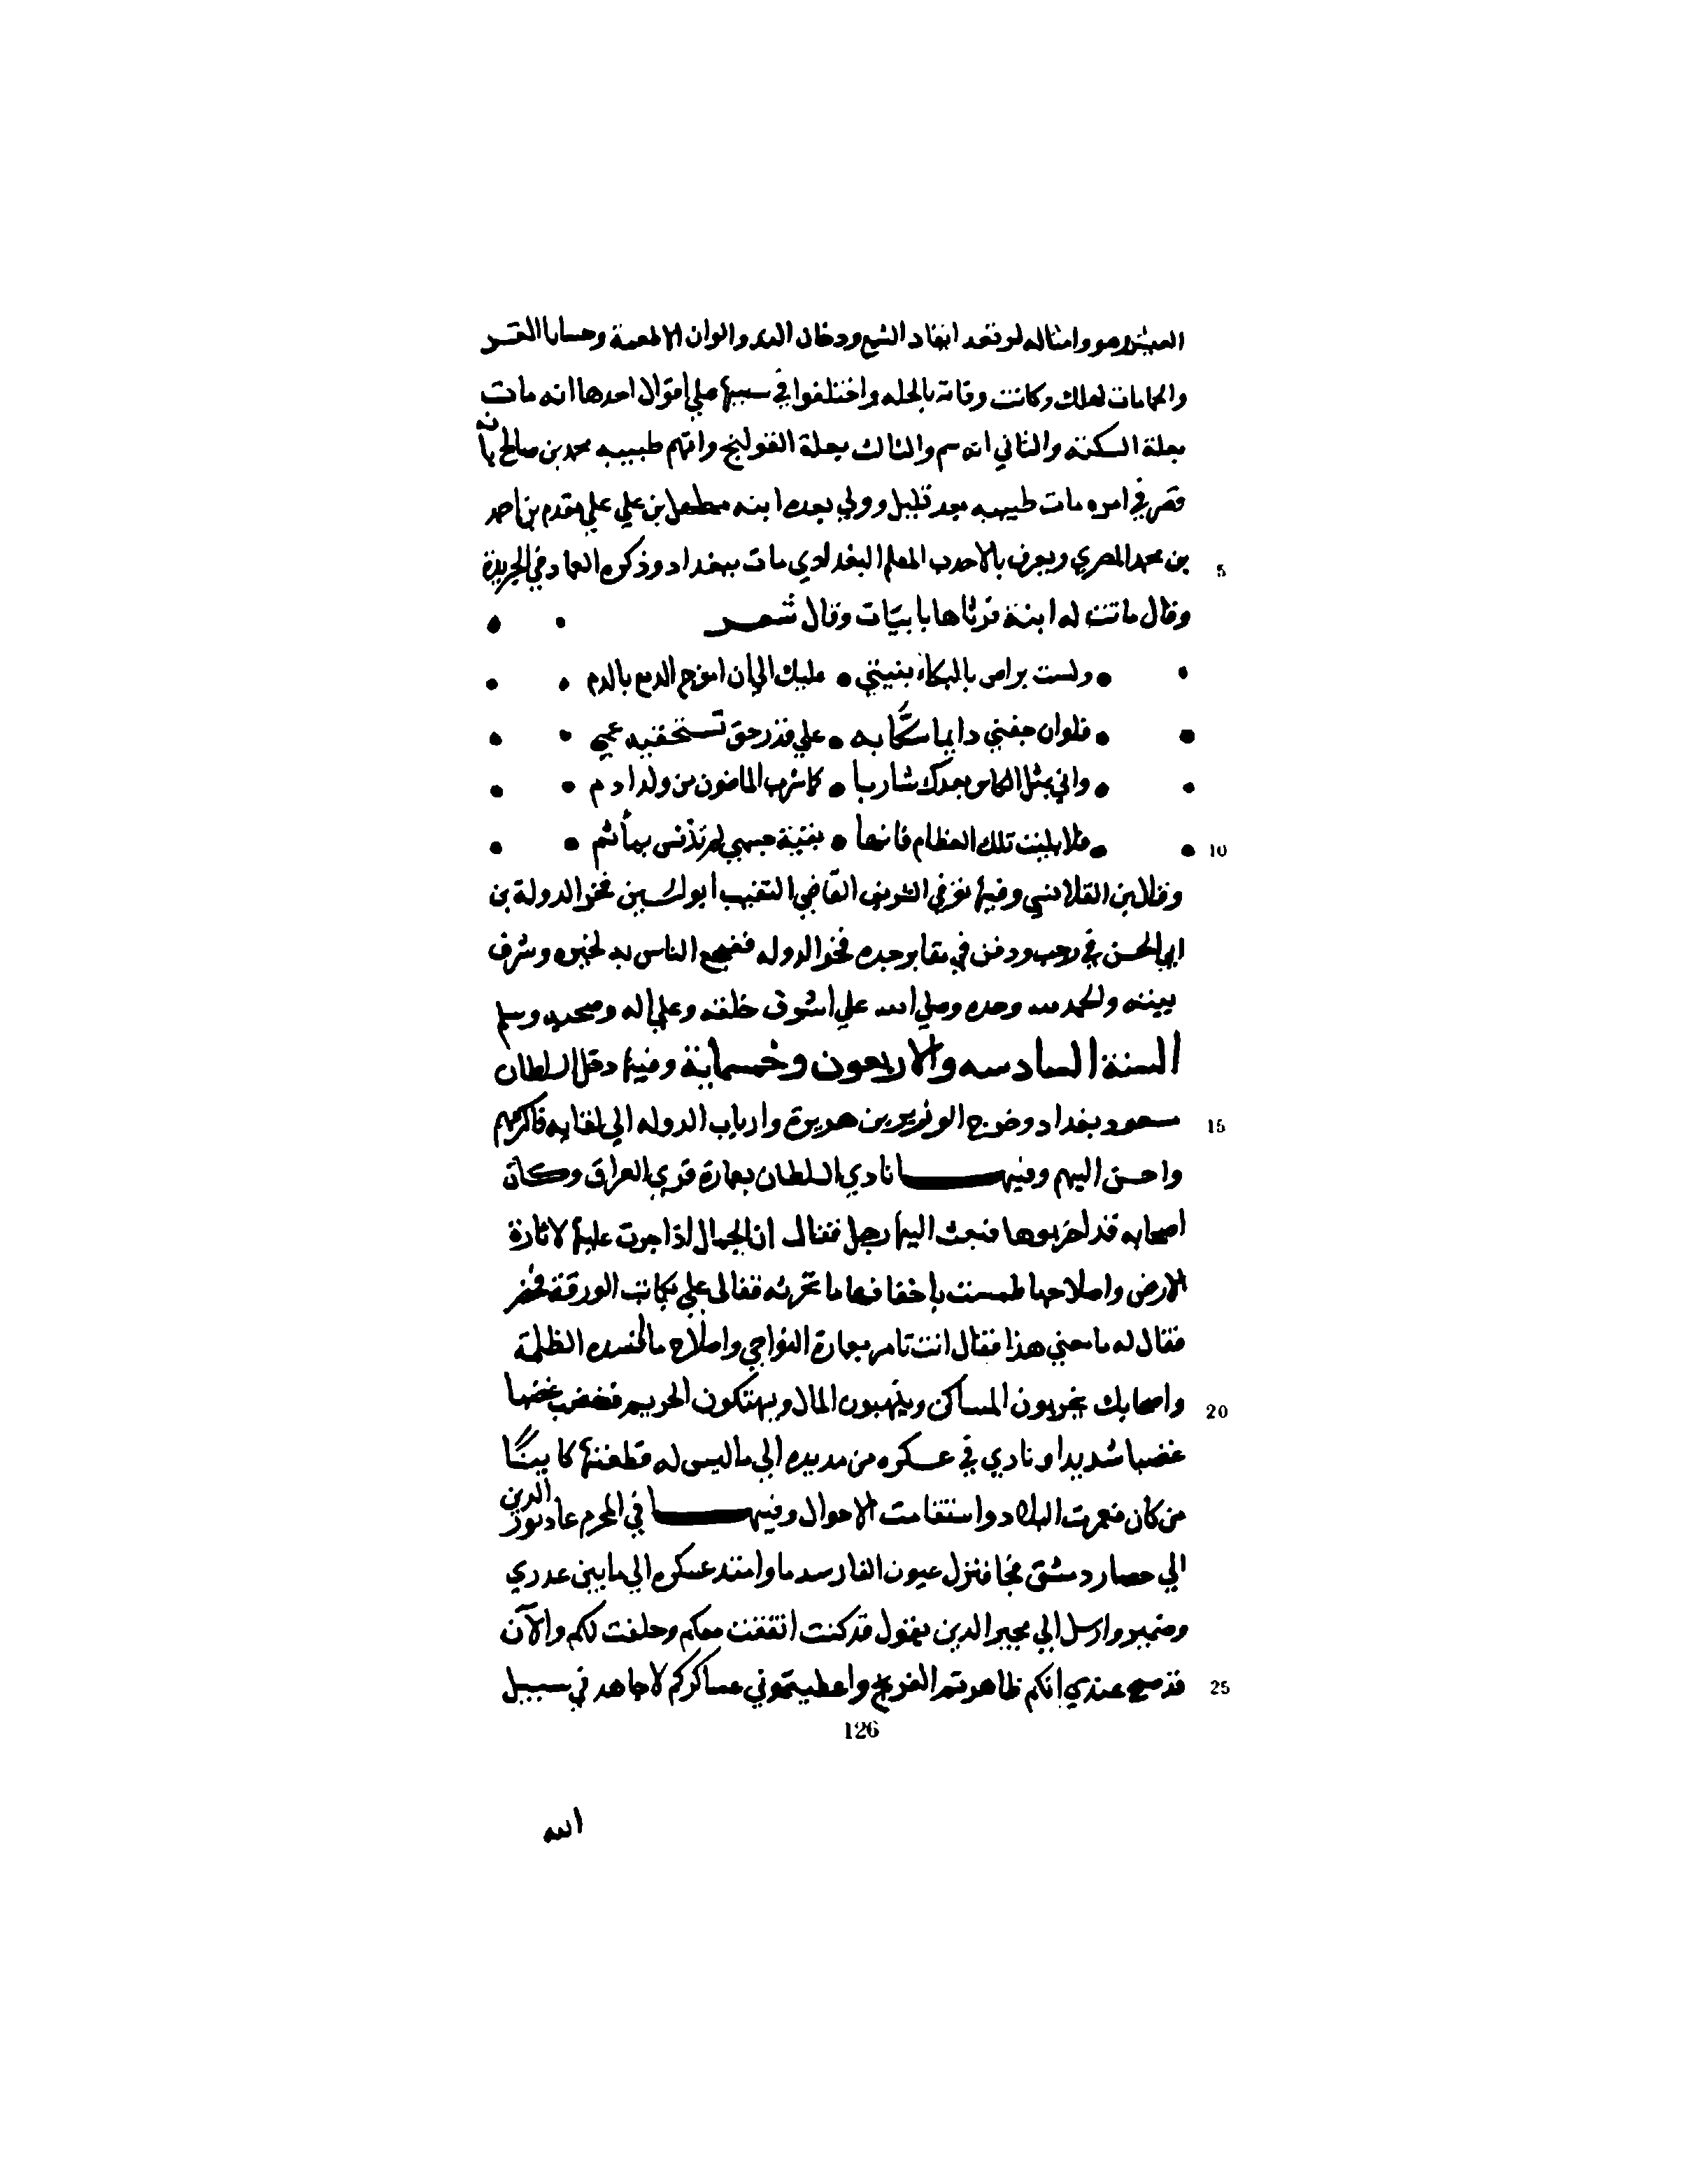 وهو وامثاله لو فقد ابقاد الشمع ودخان الند والوان الاطعمة
والحمامات لهلك وكانت وفاته بالحله واختلفوا في سببها علي اقوال احدها انه مات
بعلة السكته والثاني انه سم والثالث بعلة القولنج واتهم طبيبه محمد بن صالح بانه
قصر في امره مات طبيبه بعد قليل وولي بعده ابنه مهلهل بن علي علي مقدم بن احمد
بن محمد المصري ويعرف بالاحدب المعلم البغدادي مات ببغداد وذكره العماد في الجريدة 5
وقال ماتت له ابنة فرثاها بابيات وقال شعر
ولست براض بالبكاء بنيتي • عليك الي ان امزج الدمع بالدم
فلوان جفني دايما سكابه • علي قدر حق تستحقيه عمي
واني بمثل الكاس بعدك شاربا • كما شرب الماضون من ولد ادم
فلا بليت تلك العظام فانها • بقية جسم لم تدنس بمأثم 10
وقال ابن القلانسي وفيها توفي الشريف القاضي النقيب ابو الحسين فخر الدولة بن
ابي الحسن في رجب ودفن في مقابر جده فخر الدوله ففجع الناس به لخيره وشرف
بيته والحمد لله وحده وصلي الله علي اشرف خلقه وعلي اله وصحبه وسلم
السنة السادسه والاربعون وخمسماية وفيها دخل السلطان
مسعود بغداد وخرج الوزير بن هبيرة وارباب الدوله الي لقايه فاكرمهم 15
واحسن اليهم وفيها نادي السلطان بعمارة قري العراق وكان
اصحابه قد اخربوها فبعث اليها رجل فقال ان الجمال اذا جرت عليها لاثارة
الارض واصلاحها طمست باخفافها ما تحرثه فقال علي بكاتب الورقة فحضر
فقال له ما معني هذا فقال انت تامر بعمارة النواحي واصلاح ما افسده الظلمة
واصحابك يخربون المساكن وينهبون المال ويهتكون الحريم فغضب غضبا 20
غضبا شديدا ونادي في عسكره من مد يده الي ما ليس له قطعتها كاينًا
من كان فعمرت البلاد واستقامت الاحوال وفيها في المحرم عاد نور الدين
الي حصار دمشق فجا فنزل عيون الفارسد ما وامتد عسكره الي ما بين عدري
وضمير وارسل الي مجير الدين يقول قد كنت اتفقت معكم وحلفت لكم والآن
قد صح عندي انكم ظاهرتم الفرنج واعطيتموني عساكركم لاجاهد في سبيل 25
126
الله